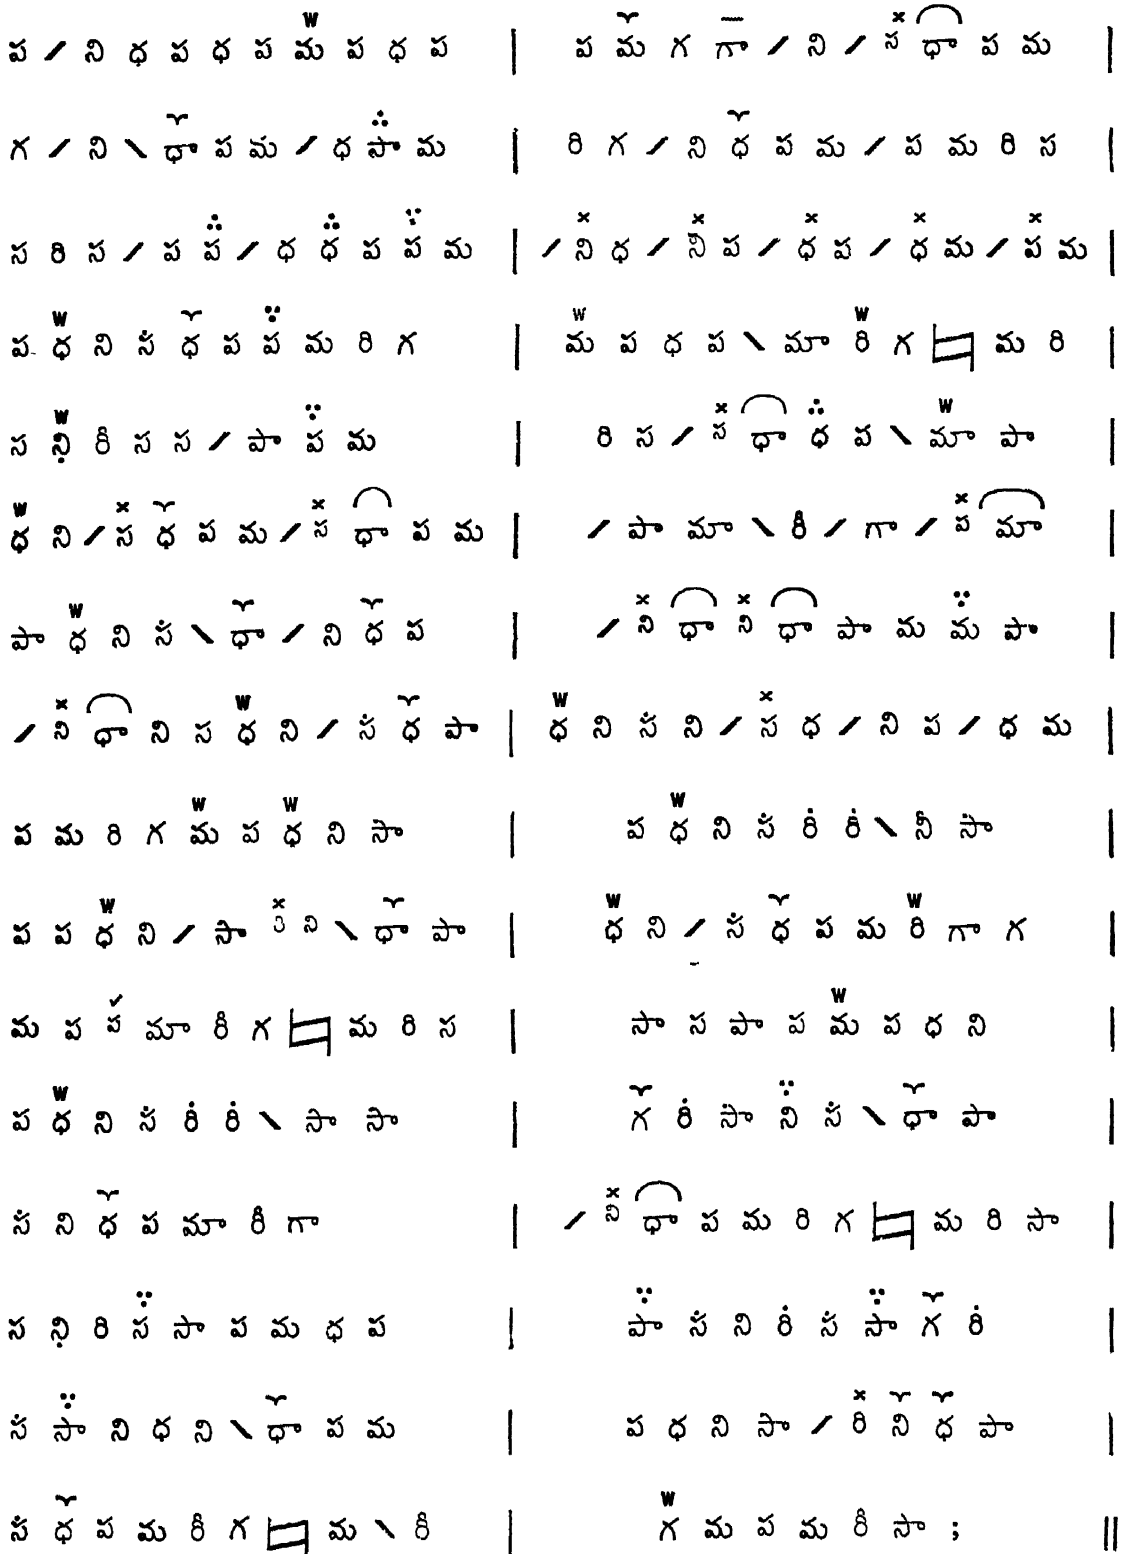 ప / ని ధ ప ధ ప మ ప ధ ప | ప మ గ గా / ని / స ధా ప మ |
గ / ని \ ధా ప మ / ధ సా మ | రి గ / ని ధ ప మ / ప మ రి స |
స రి స / ప ప / ధ ధ ప ప మ | / ని ధ / ని ప / ధ ప / ధ మ / ప మ |
ప ధ ని స ధ ప ప మ రి గ | మ ప ధ ప \ మా రి గ మ రి |
స ని రీ స స / పా ప మ | రి స / స ధా ధ ప \ మా పా |
ధ ని / స ధ ప మ / స ధా ప మ | / పా మా \ రీ / గా / ప మా |
పా ధ ని స \ ధా / ని ధ ప | / ని ధా ని ధా పా మ మ పా |
/ ని ధా ని స ధ ని / స ధ పా | ధ ని స ని / స ధ / ని ప / ధ మ |
ప మ రి గ మ ప ధ ని సా | ప ధ ని స రి రి \ నీ సా |
ప ప ధ ని / సా ని \ ధా పా | ధ ని / స ధ ప మ రి గా గ |
మ ప ప మా రీ గ మ రి స | సా స పా ప మ ప ధ ని |
ప ధ ని స రి రి \ సా సా | గ రి సా ని స \ ధా పా |
స ని ధ ప మా రీ గా | / ని ధా ప మ రి గ మ రి సా |
స ని రి స సా ప మ ధ ప | పా స ని రి స సా గ రి |
స సా ని ధ ని \ ధా ప మ | ప ధ ని సా / రి ని ధ పా |
స ధ ప మ రీ గ మ \ రీ | గ మ ప మ రీ సా ; ||